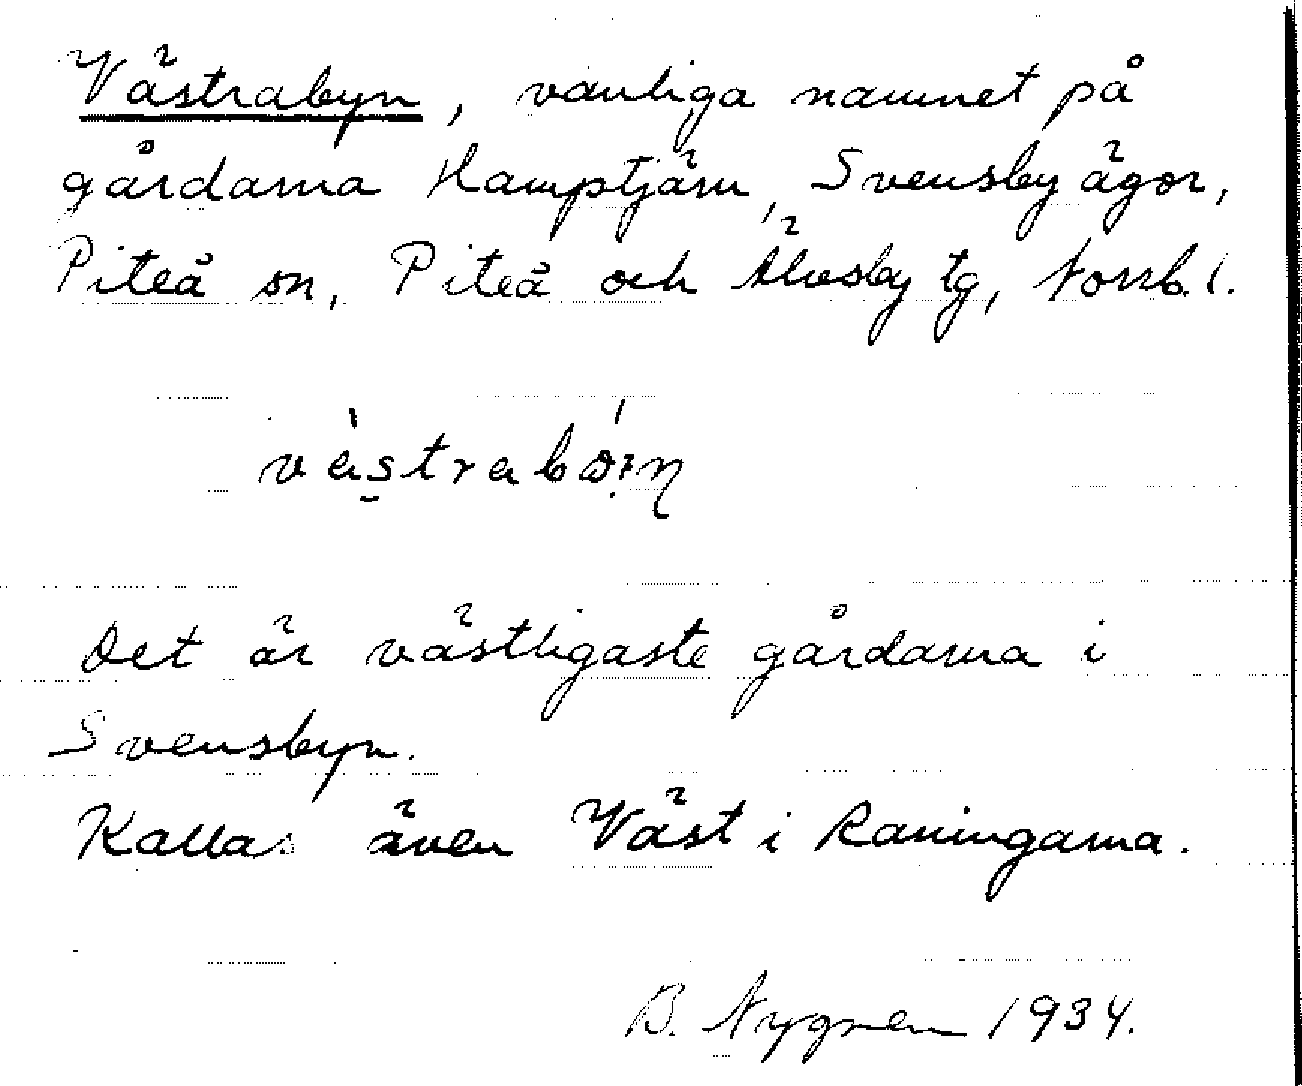 Västrabyn, vanliga namnet på
gårdarna Hamptjärn, Svensby ägor,
Piteå sn, Piteå och Älvsby tg, Norrb. l.
Det är västligaste gårdarna i
Svensbyn.
Kallas även Väst i Raningarna.
B. Nygren 1934.